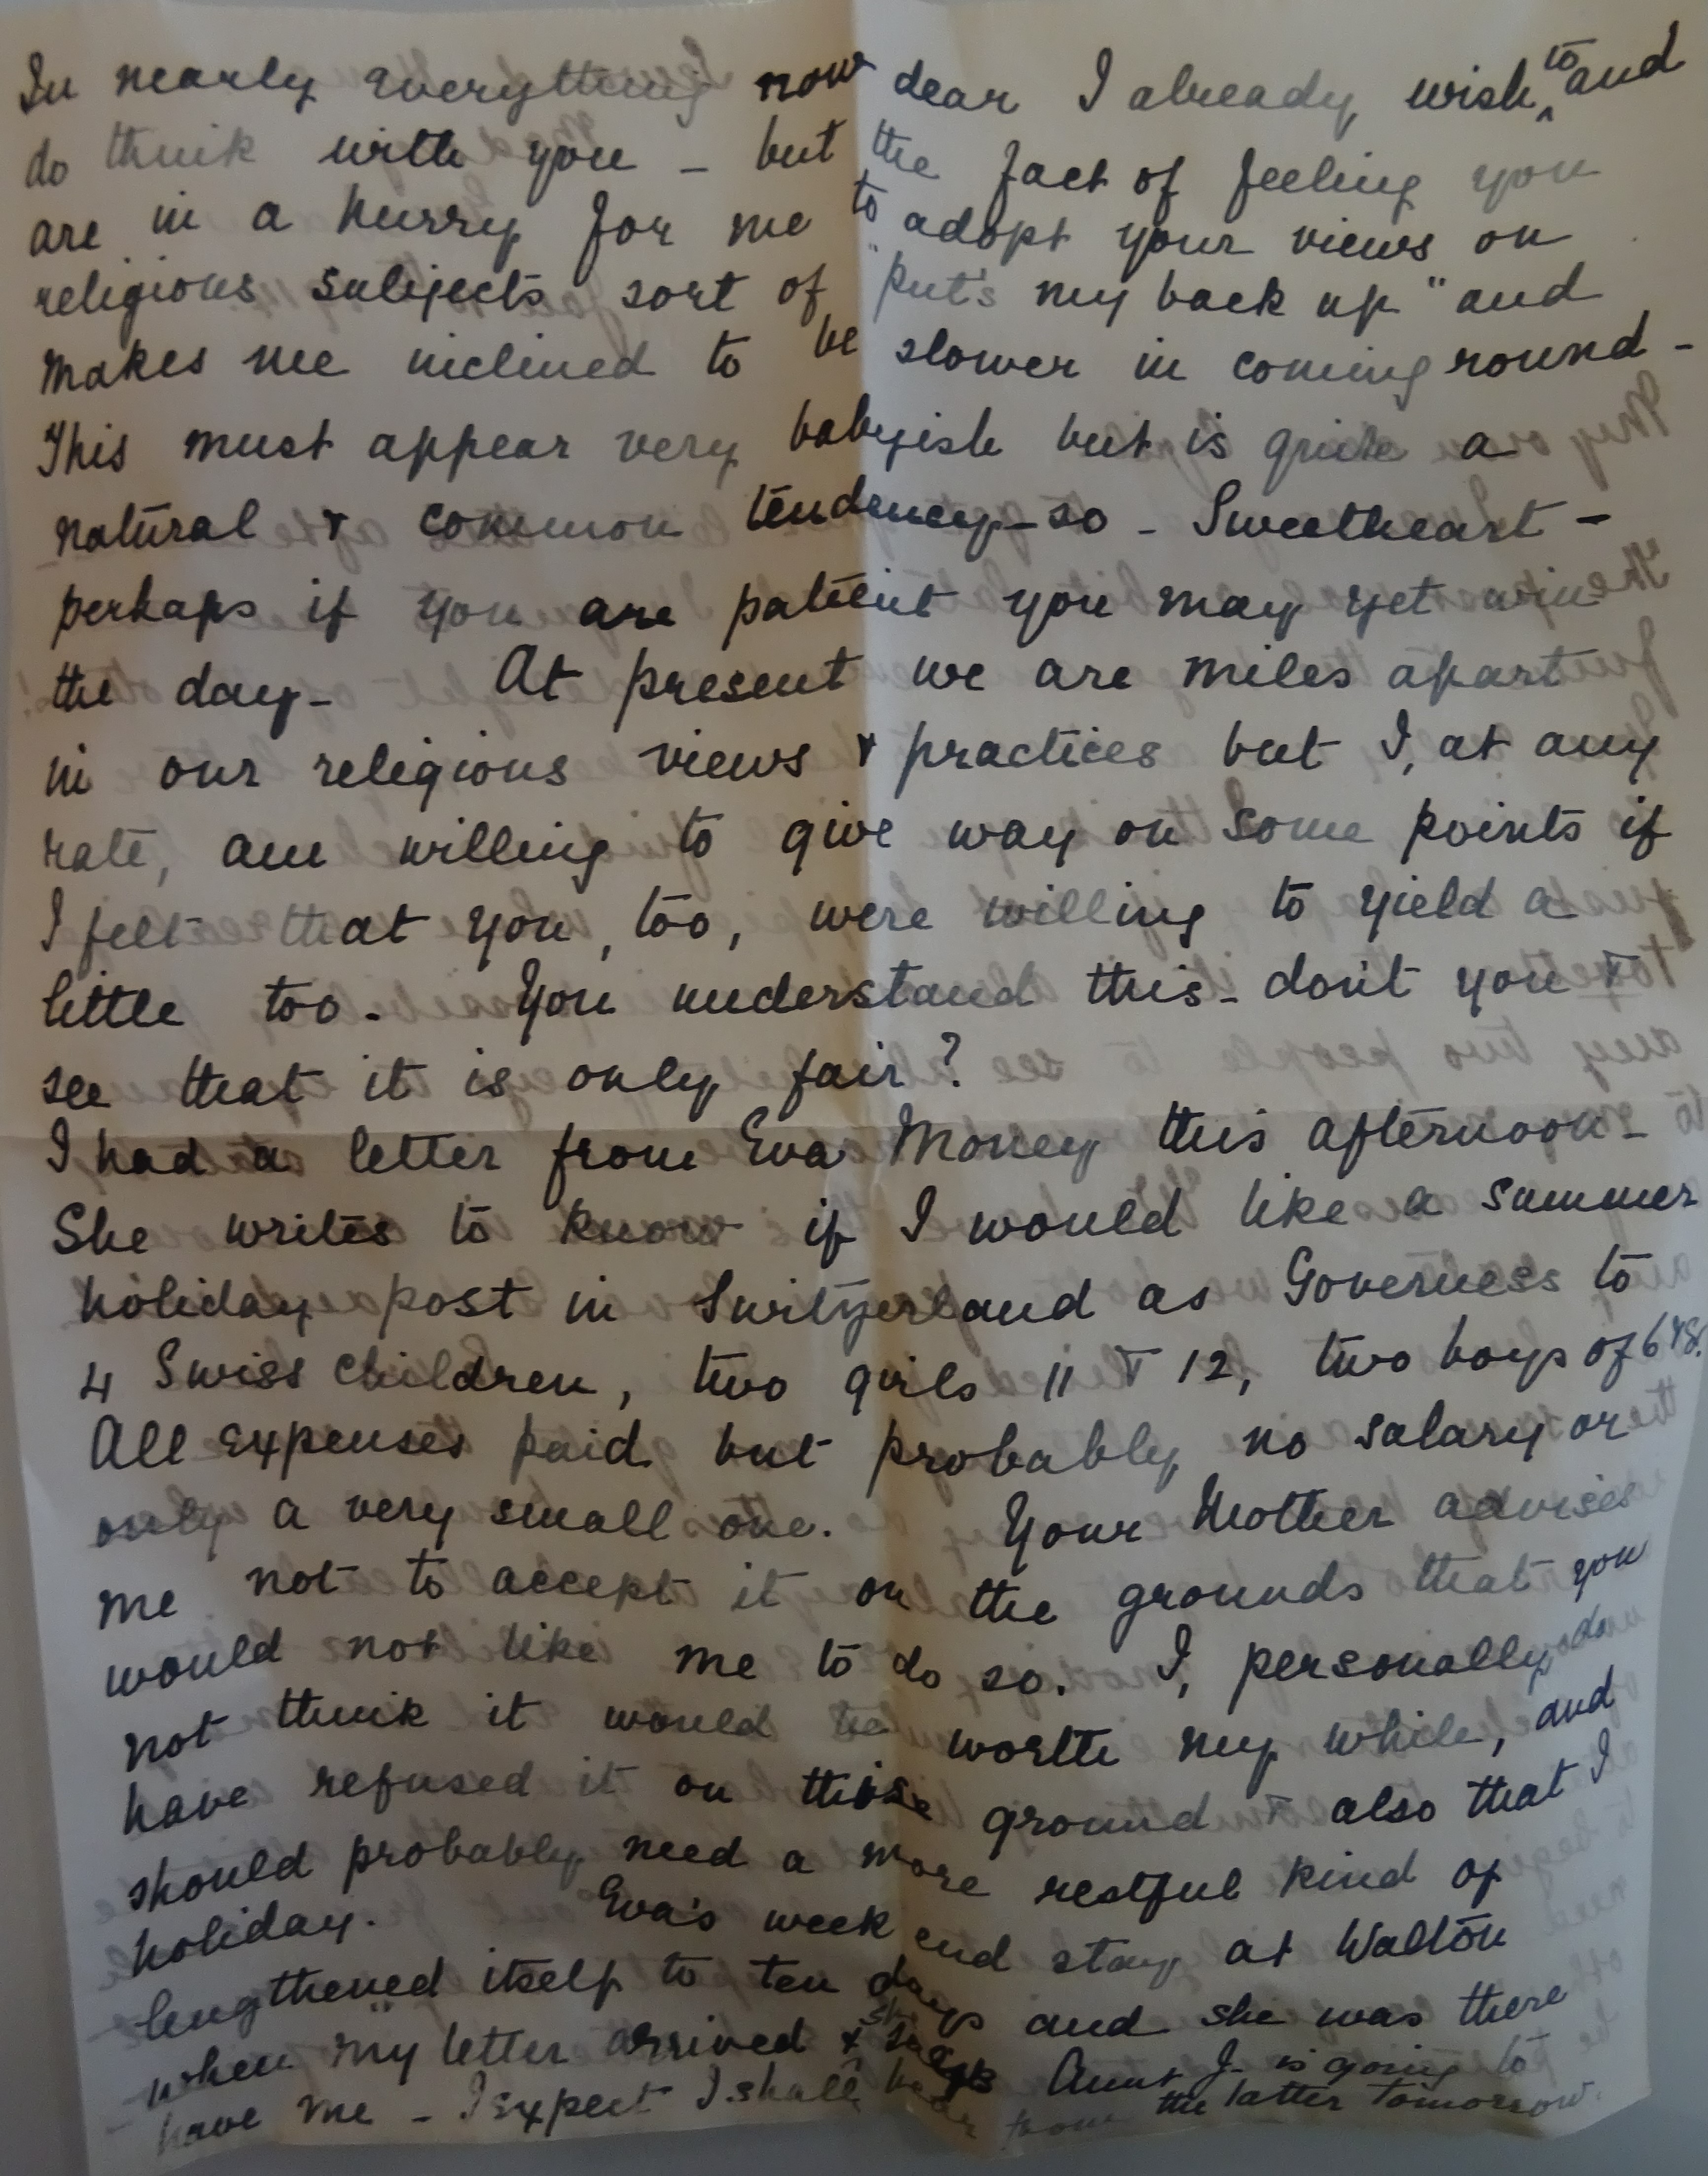 In nearly everything now dear I already wish ^to and
do think with you - but the fact of feeling you
are in a hurry for me to adopt your views on
religious subjects sort of "put's my back up" and
makes me inclined to be slower in coming round -
This must appear very babyish but is quite a
natural & common tendency - so - Sweetheart -
perhaps if you are patient you may yet win
the day - At present we are miles apart
in our religious views & practices but I, at any
rate, am willing to give way on some points if
I felt that you, too, were willing to yield a
little too. You understand this - don't you &
see that it is only fair?
I had a letter from Eva Money this afternoon -
She writes to know if I would like a summer
holiday post in Switzerland as Governess to
4 Swiss children, two girls 11 & 12, two boys of 6 & 8.
All expenses paid but probably no salary or
only a very small one. Your Mother advises
me not to accept it on the grounds that you
would not like me to do so. I, personally do
not think it would be worth my while, and
have refused it on those ground & also that I
should probably need a more restful kind of
holiday. Eva's week end stay at Walton
lengthened itself to ten days and she was there
when my letter arrived & she says Aunt J. is going to
have me - I expect I shall hear from the latter tomorrow.